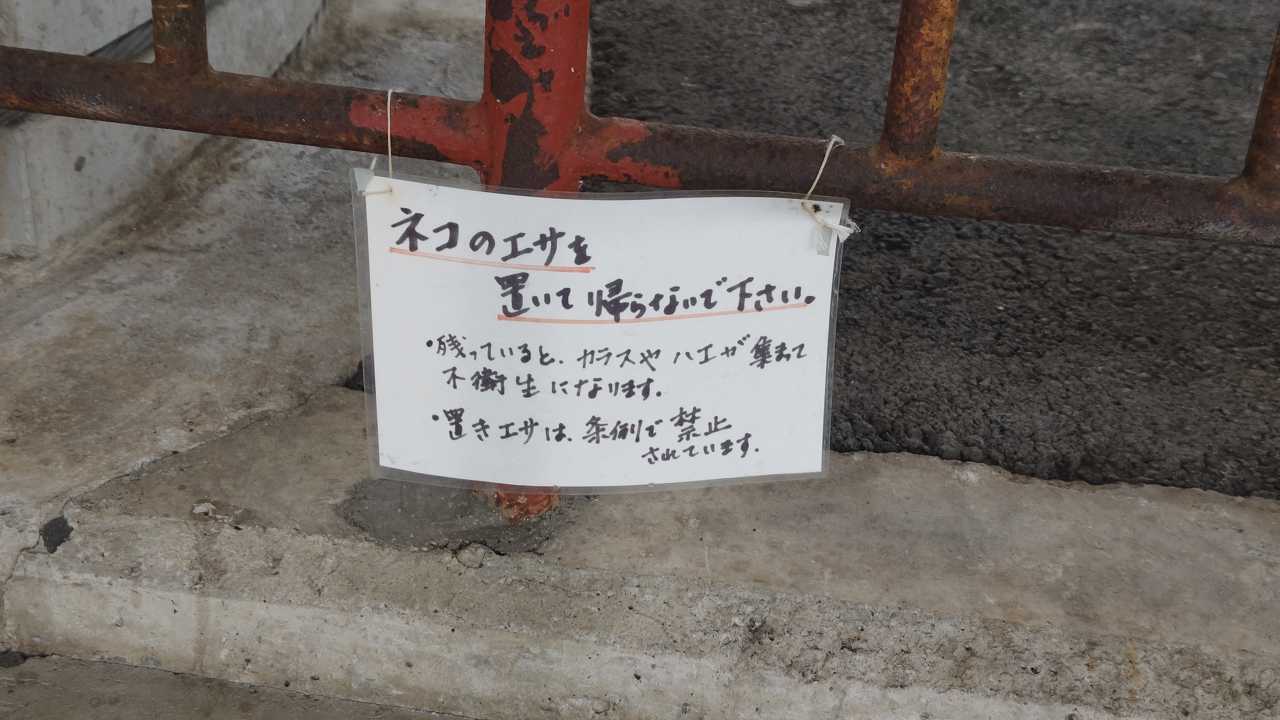 ネコのエサを
置いて帰らないで下さい。
・残っていると、カラスやハエが集まって
不衛生になります。
・置きエサは、条例で禁止
されています。